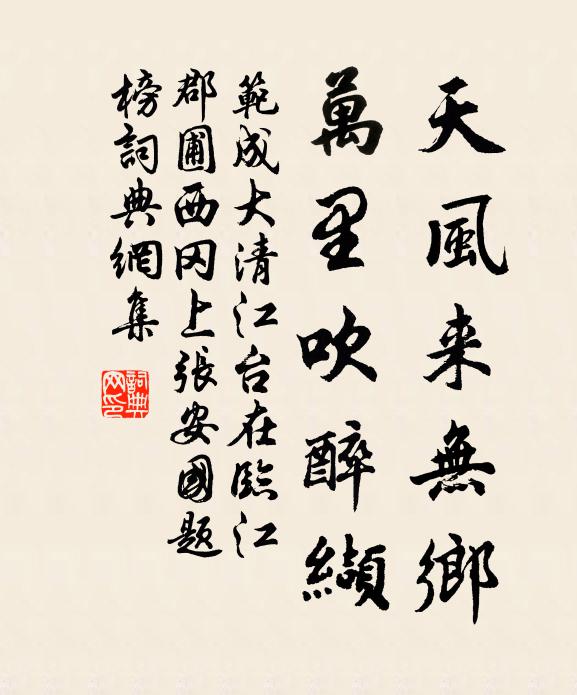 天風来無鄉
萬里吹醉纈
範成大清江台在臨江
郡圃西冈上張安國題
榜詞典網集
詞典
网印